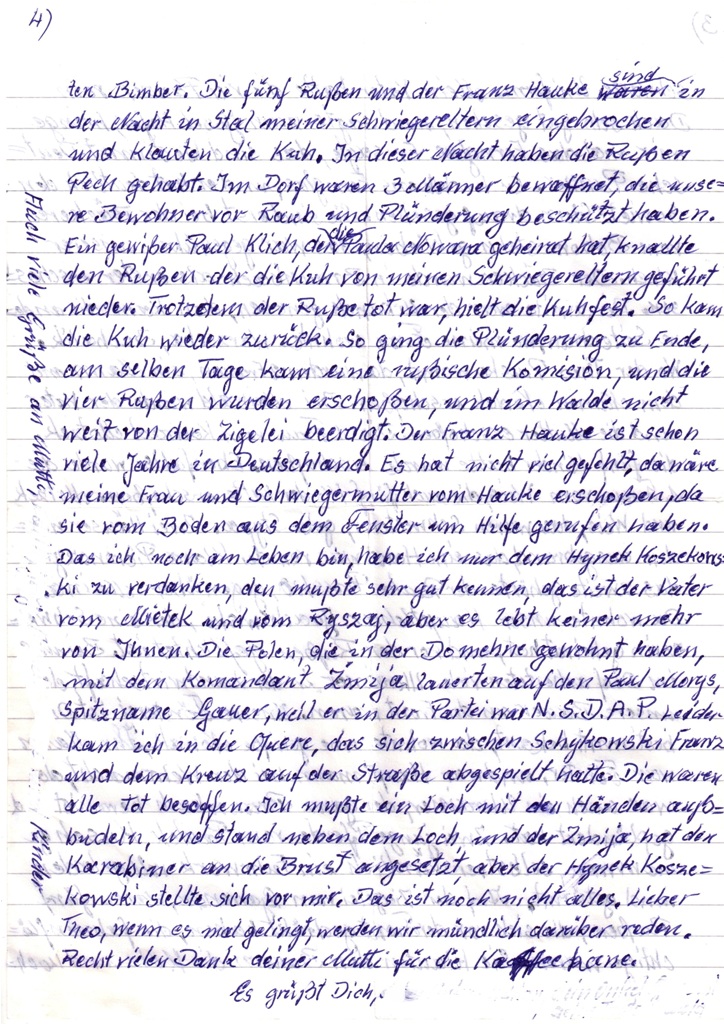 4)
ten Bimber. Die fünf Rußen und der Franz Hauke sind in
der Nacht in Stal meiner Schwiegereltern eingebrochen
und klauten die Kuh. In dieser Nacht haben die Rußen
Pech gehabt. Im Dorf waren 3 Männer bewaffnet, die unse=
re Bewohner vor Raub und Plünderung beschützt haben.
Ein gewißer Paul Klich, der die Paula Nowara geheirat hat, knallte
den Rußen der die Kuh von meinen Schwiegereltern geführt
nieder. Trotzdem der Ruße tot war, hielt die Kuh fest. So kam
die Kuh wieder zurück. So ging die Plünderung zu Ende,
am selben Tage kam eine rußische Komision, und die
vier Rußen wurden erschoßen, und im Walde nicht
weit von der Zigelei beerdigt. Der Franz Hauke ist schon
viele Jahre in Deutschland. Es hat nicht viel gefehlt, da wäre
meine Frau und Schwiegermutter vom Hauke erschoßen, da
sie vom Boden aus dem Fenster um Hilfe gerufen haben.
Das ich noch am Leben bin, habe ich nur dem Hynek Koszekows
ki zu verdanken, den mußte sehr gut kennen, das ist der Vater
vom Mietek und vom Ryszaj, aber es lebt keiner mehr
von Ihnen. Die Polen, die in der Domehne gewohnt haben,
mit dem Komandant Żmija lauerten auf den Paul Morgs,
Spitzname Gauer, weil er in der Partei war N.S.D.A.P. Leider
kam ich in die Quere, das sich zwischen Schykowski Franz
und dem Kreuz auf der Straße abgespielt hatte. Die waren
alle tot besoffen. Ich mußte ein Loch mit den Händen auß=
budeln, und stand neben dem Loch, und der Żmija, hat den
Karabiner an die Brust angesetzt, aber der Hynek Kosze=
kowski stellte sich vor mir. Das ist noch nicht alles. Lieber
Theo, wenn es mal gelingt, werden wir mündlich darüber reden.
Recht vielen Dank deiner Mutti für die Kaffeebohne.
Es grüßt Dich,
Auch viele Grüße an Mutti,
Kinder